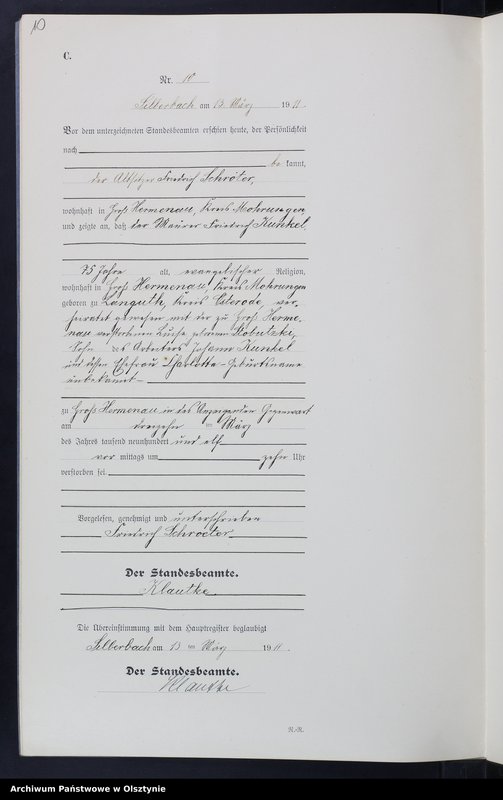 10
C.
Nr. 10
Silberbach am 13 März 1911.
Vor dem unterzeichneten Standesbeamten erschien heute, der Persönlichkeit
nach
bekannt,
der Altsitzer Friedrich Schröter,
wohnhaft in Groß Hermenau, Kreis Mohrungen,
und zeigte an, daß der Maurer Friedrich Kunkel,
75 Jahre alt, evangelischer Religion,
wohnhaft in Groß Hermenau, Kreis Mohrungen
geboren zu Languth, Kreis Osterode, ver-
heiratet gewesen mit der zu Groß Herme-
nau verstorbenen geborenen Kobutzki,
Sohn des Arbeiters Johann Kunkel
und dessen Ehefrau Charlotte Geburtsname
unbekannt
zu Groß Hermenau in des Anzeigenden Gegenwart
am dreizehn ten März
des Jahres tausend neunhundert und elf
vor mittags um zehn Uhr
verstorben sei.
Vorgelesen, genehmigt und unterschrieben
Friedrich Schroeter
Der Standesbeamte.
Klautke
Die Übereinstimmung mit dem Hauptregister beglaubigt
Silberbach am 13 ten März 1911.
Der Standesbeamte.
Klautke
R.-R.
Archiwum Państwowe w Olsztynie